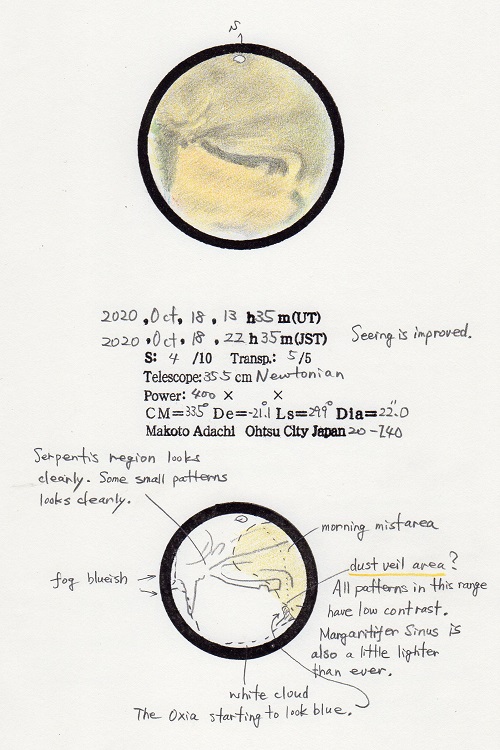 S
2020, Oct, 18, 13 h 35 m (UT)
2020, Oct, 18, 22 h 35 m (JST)
Seeing is improved.
S: 4 /10 Transp.: 5/5
Telescope: 35.5 cm Newtonian
Power: 400 × ×
CM=335° De=-21.1 Ls=299° Dia=22".0
Makoto Adachi Ohtsu City Japan 20-240
Serpentis region looks
clearly. Some small patterns
looks clearly.
morning mist area
dust veil area?
fog blueish
All patterns in this range
have low contrast.
Margaritifer Sinus is
also a little lighter
than ever.
white cloud
The Oxia starting to look blue.